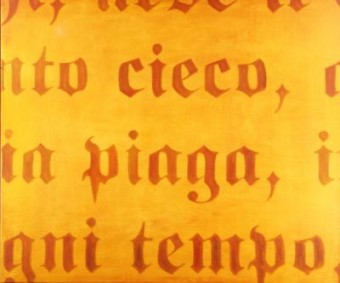 nto cieco,
ia piaga, i
gni tempo,